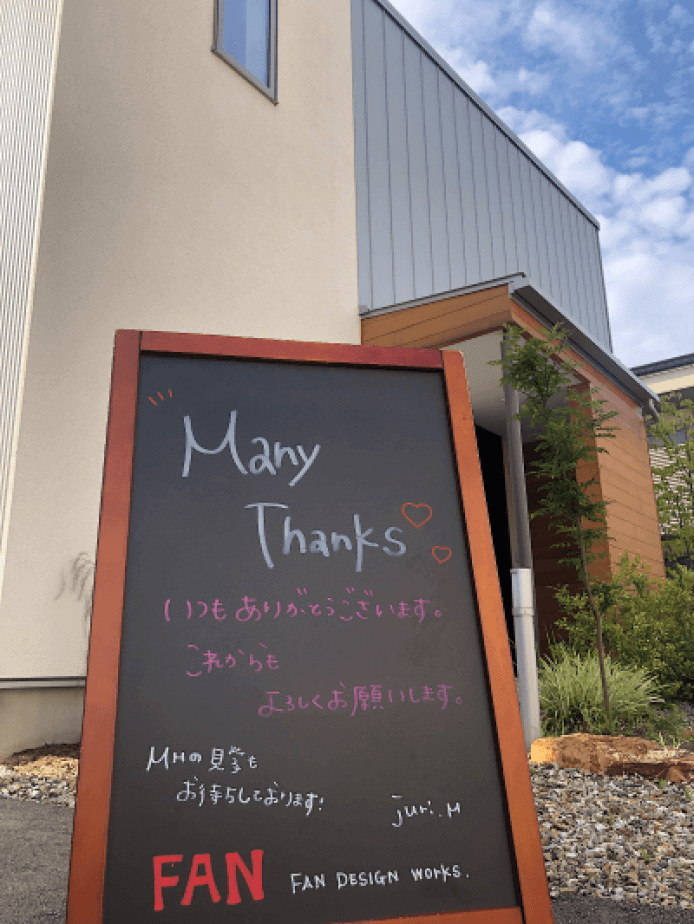 Many
Thanks
いつもありがとうございます。
これからも
よろしくお願いします。
MHの見学も
お待ちしております!
juri.M
FAN FAN DESIGN WORKS.